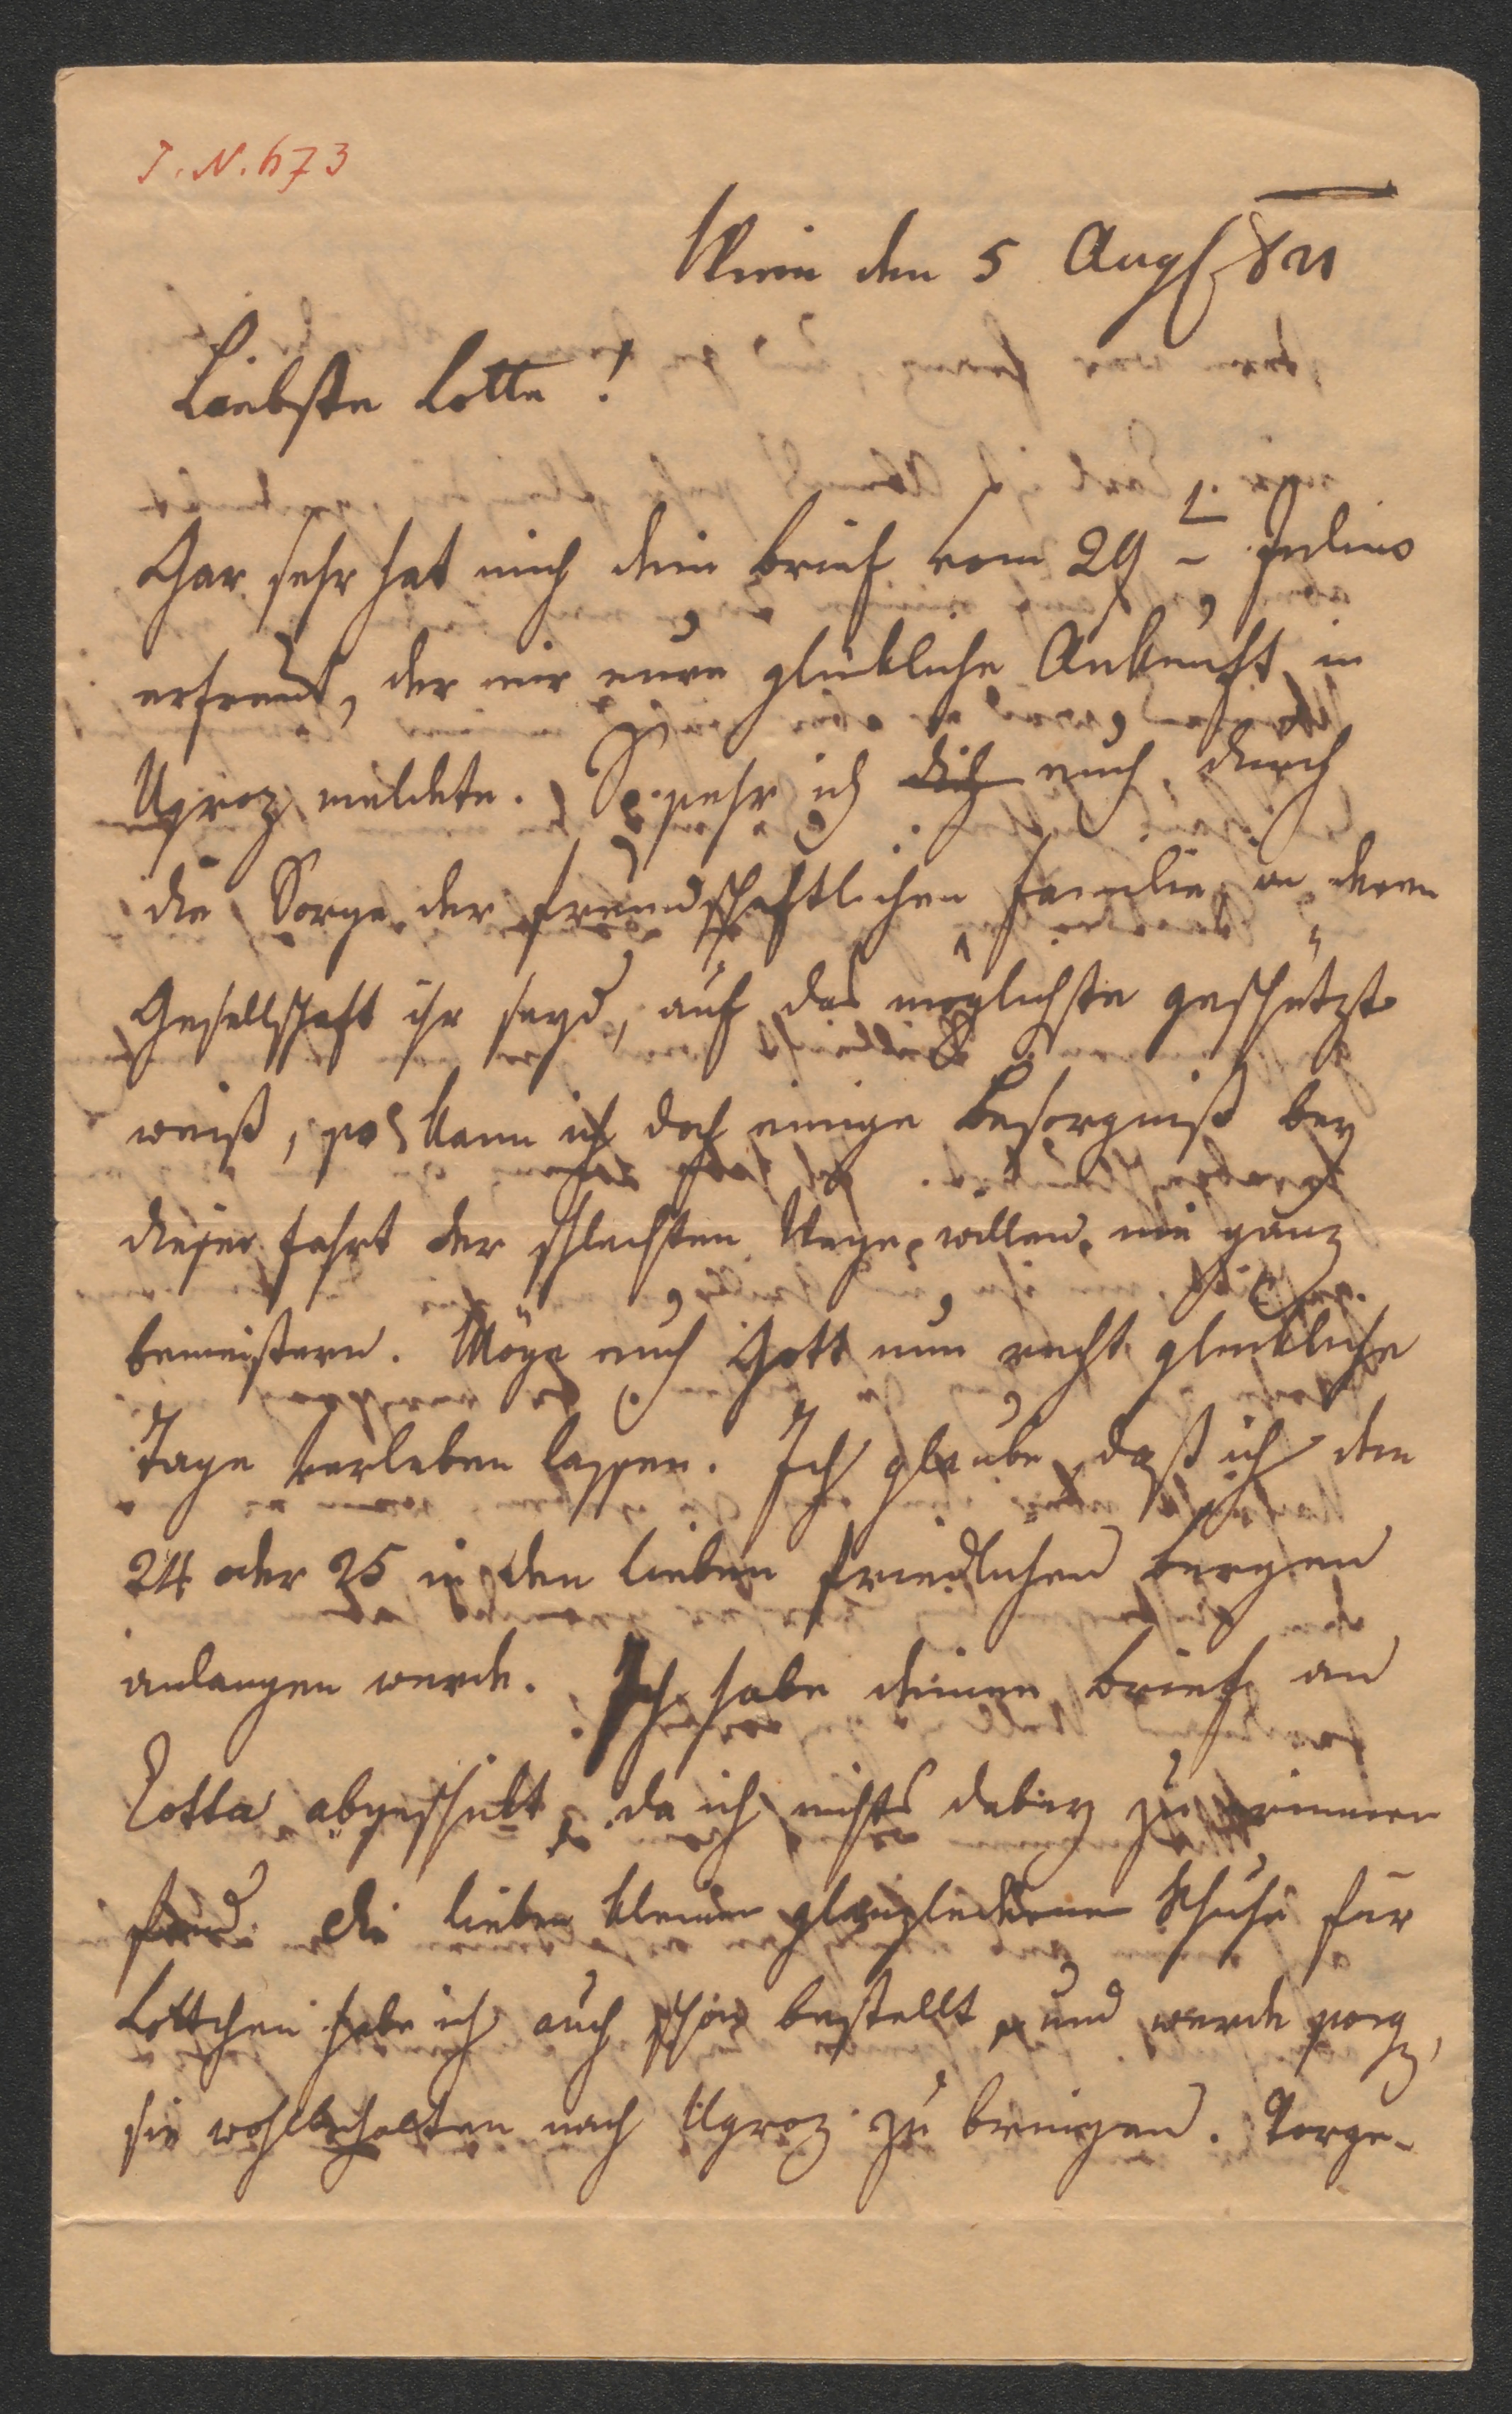 I. N. 673
Wien den 5 Aug 821
Liebste Lotte!
Gar sehr hat mich dein Brief vom 29 t Julius
erfreut, der mir eure glückliche Ankunft in
Ugroz meldete. So sehr ich dich euch durch
die Sorge der freundschaftlichen Familie in deren
Gesellschaft ihr seyd, auf das möglichste geschützt
weiß, so kann ich doch einige Besorgniß bey
dieser Fahrt der schlechten Wege willen nie ganz
bemeistern. Möge euch Gott nun recht glückliche
Tage verleben lassen. Ich glaube daß ich den
24 oder 25 in den lieben friedlichen Bergen
anlangen werde. Ich habe deinen Brief an
abgeschickt, da ich nichts dabey zu erinnern
fand. Die lieben kleinen glanzledernen Schuhe für
Lottchen habe ich auch schon bestellt, und werde sorg,
sie wohlbehalten nach Ugroz zu bringen. Vorge-